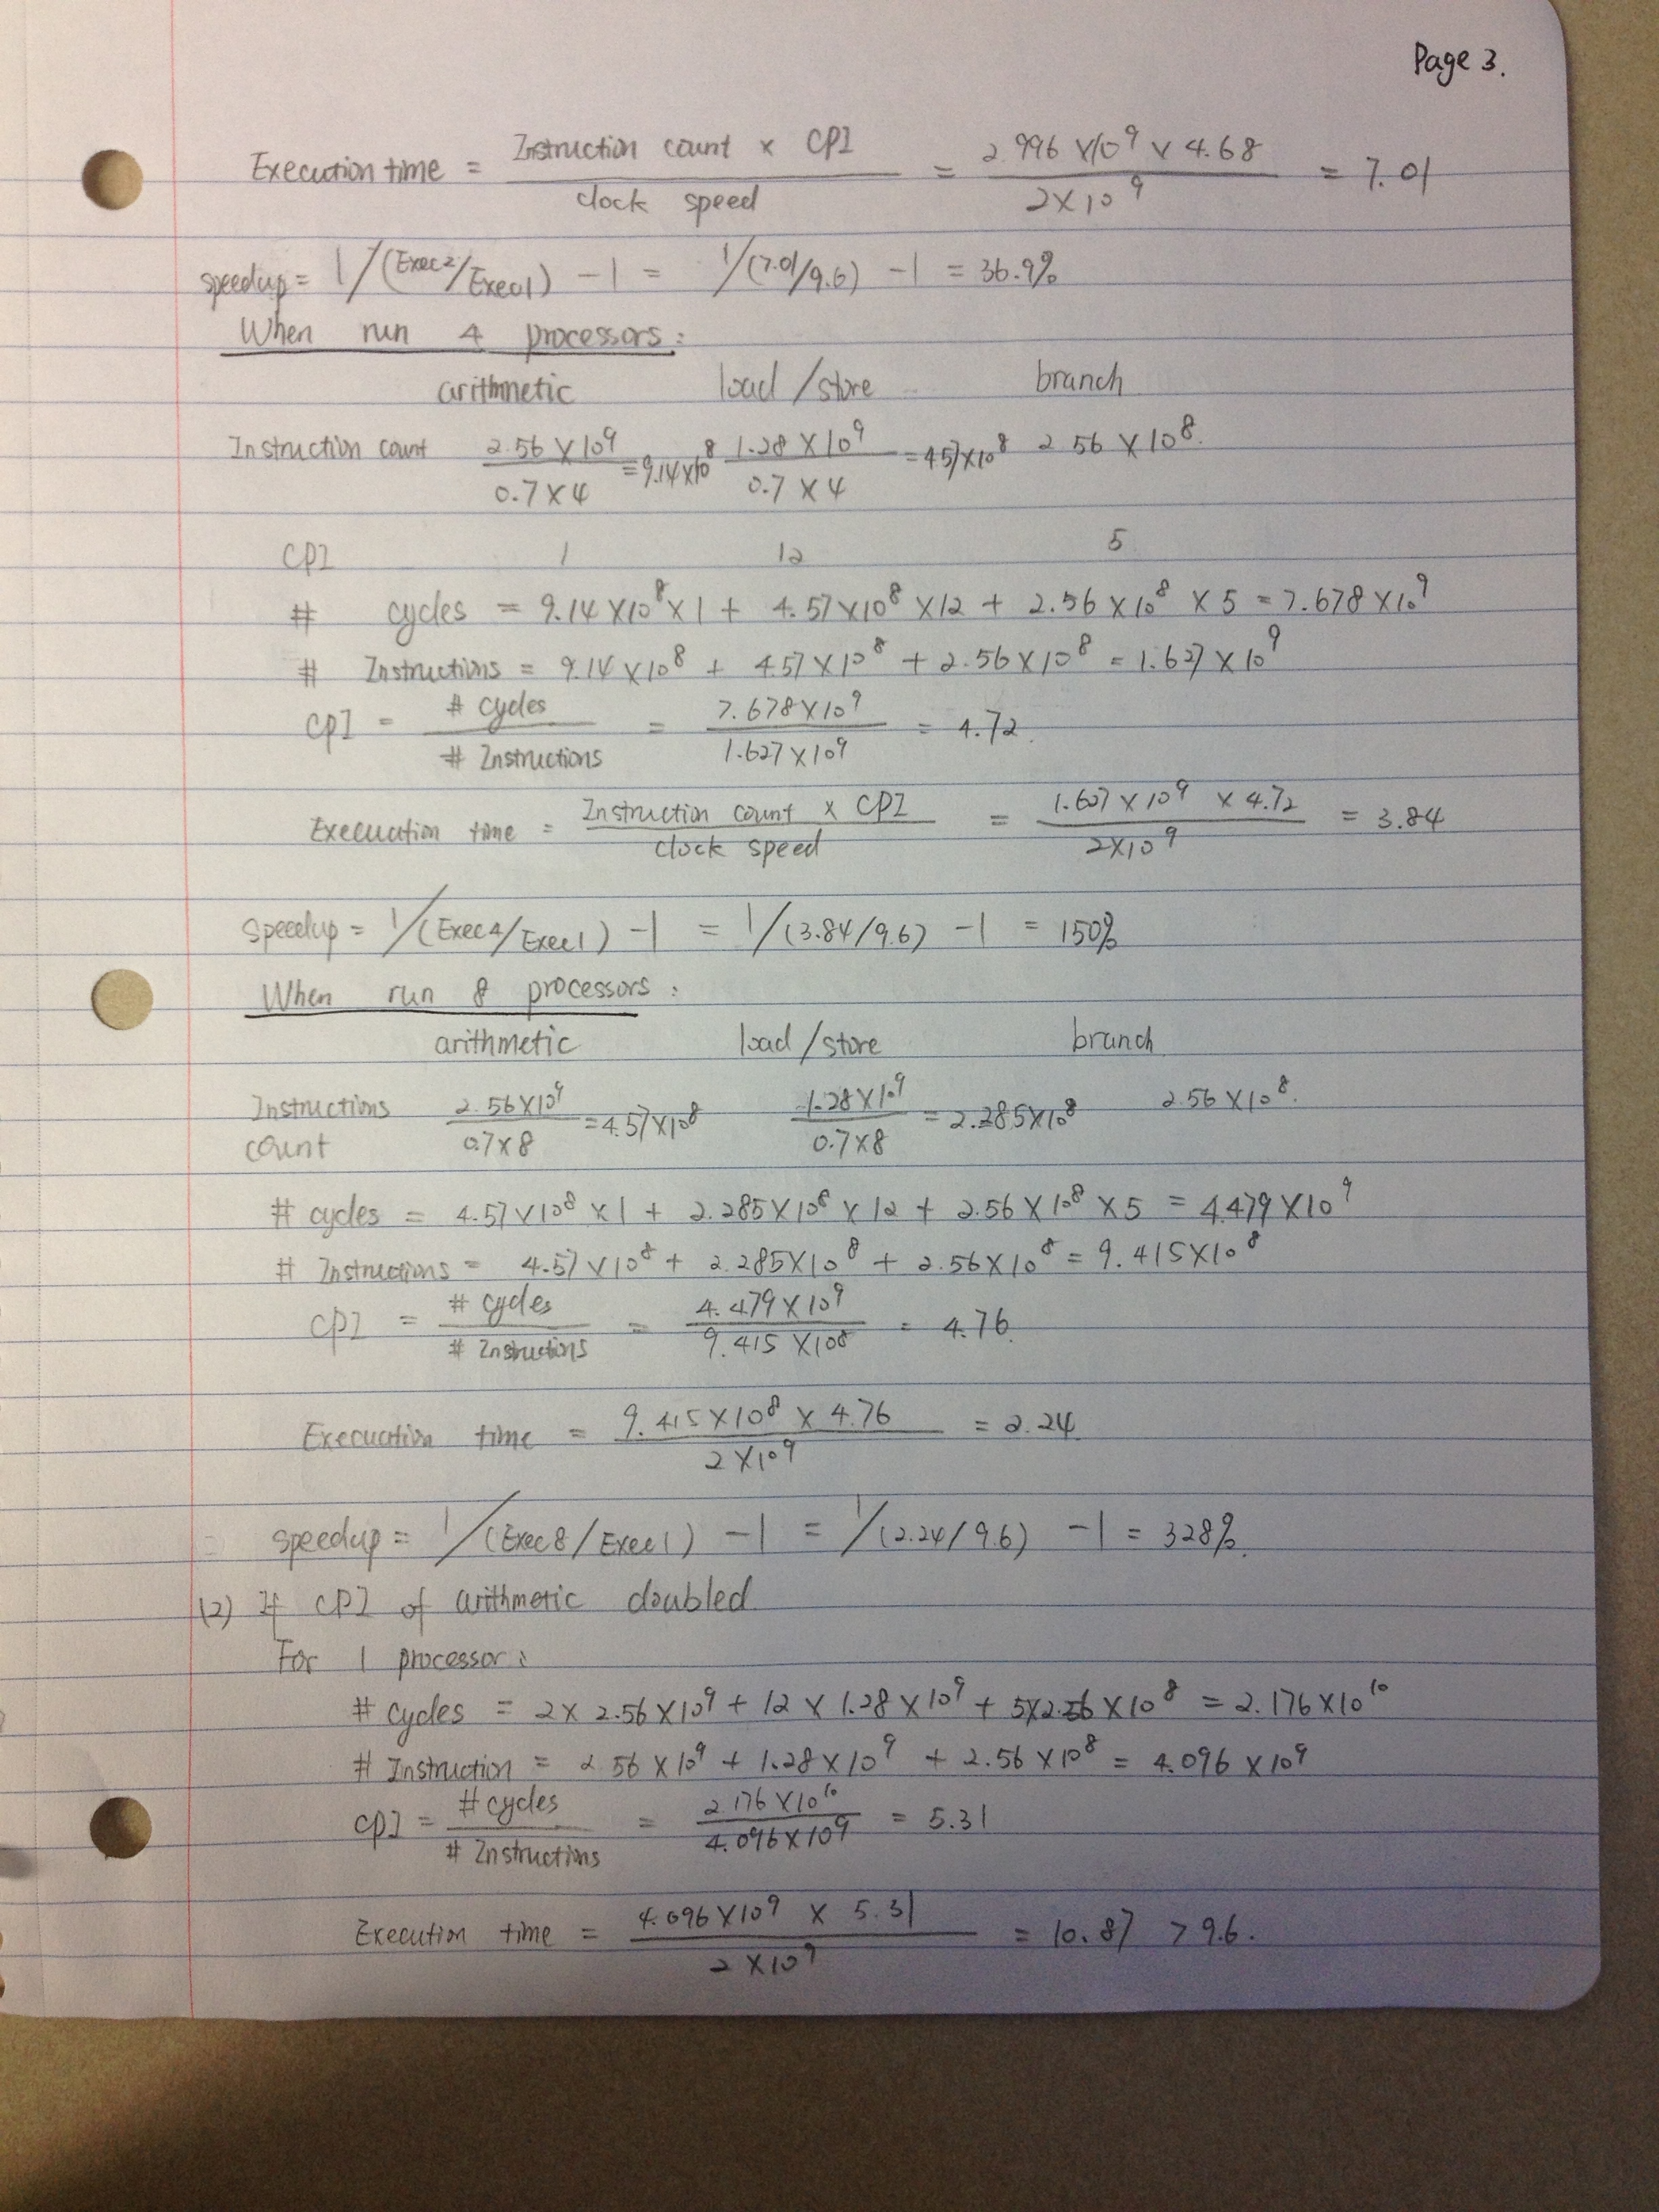 Page 3.
Execution time = Instruction count × CPI / clock speed = 2.996 × 10^9 × 4.68 / 2 × 10^9 = 7.01
speedup = 1/(Exec2/Exec1) - 1 = 1/(7.01/9.6) - 1 = 36.9%
When run 4 processors:
arithmetic load/store branch
Instruction count 2.56 × 10^9 / 0.7 × 4 = 9.14 × 10^8 1.28 × 10^9 / 0.7 × 4 = 4.57 × 10^8 2.56 × 10^8.
CPI 1 12 5
# cycles = 9.14 × 10^8 × 1 + 4.57 × 10^8 × 12 + 2.56 × 10^8 × 5 = 7.678 × 10^9
# Instructions = 9.14 × 10^8 + 4.57 × 10^8 + 2.56 × 10^8 = 1.627 × 10^9
CPI = # cycles / # Instructions = 7.678 × 10^9 / 1.627 × 10^9 = 4.72.
Execuation time = Instruction count × CPI / clock speed = 1.627 × 10^9 × 4.72 / 2 × 10^9 = 3.84
speedup = 1/(Exec4/Exec1) - 1 = 1/(3.84/9.6) - 1 = 150%
When run 8 processors:
arithmetic load/store branch
Instructions count 2.56 × 10^9 / 0.7 × 8 = 4.57 × 10^8 1.28 × 10^9 / 0.7 × 8 = 2.285 × 10^8 2.56 × 10^8.
# cycles = 4.57 × 10^8 × 1 + 2.285 × 10^8 × 12 + 2.56 × 10^8 × 5 = 4.479 × 10^9
# Instructions = 4.57 × 10^8 + 2.285 × 10^8 + 2.56 × 10^8 = 9.415 × 10^8
CPI = # cycles / # Instructions = 4.479 × 10^9 / 9.415 × 10^8 = 4.76.
Execuation time = 9.415 × 10^8 × 4.76 / 2 × 10^9 = 2.24
speedup = 1/(Exec8/Exec1) - 1 = 1/(2.24/9.6) - 1 = 328%.
(2) If CPI of arithmetic doubled
For 1 processor:
# cycles = 2 × 2.56 × 10^9 + 12 × 1.28 × 10^9 + 5 × 2.56 × 10^8 = 2.176 × 10^10
# Instruction = 2.56 × 10^9 + 1.28 × 10^9 + 2.56 × 10^8 = 4.096 × 10^9
CPI = # cycles / # Instructions = 2.176 × 10^10 / 4.096 × 10^9 = 5.31
Execution time = 4.096 × 10^9 × 5.31 / 2 × 10^9 = 10.87 > 9.6.